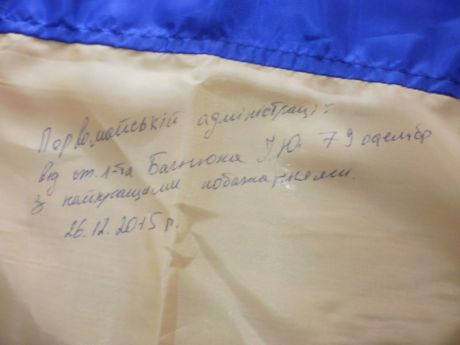 Первомайській адміністрації
від ст. л-та Багнюка І.Ю. 79 оаембр
з найкращими побажаннями.
26.12.2015 р.